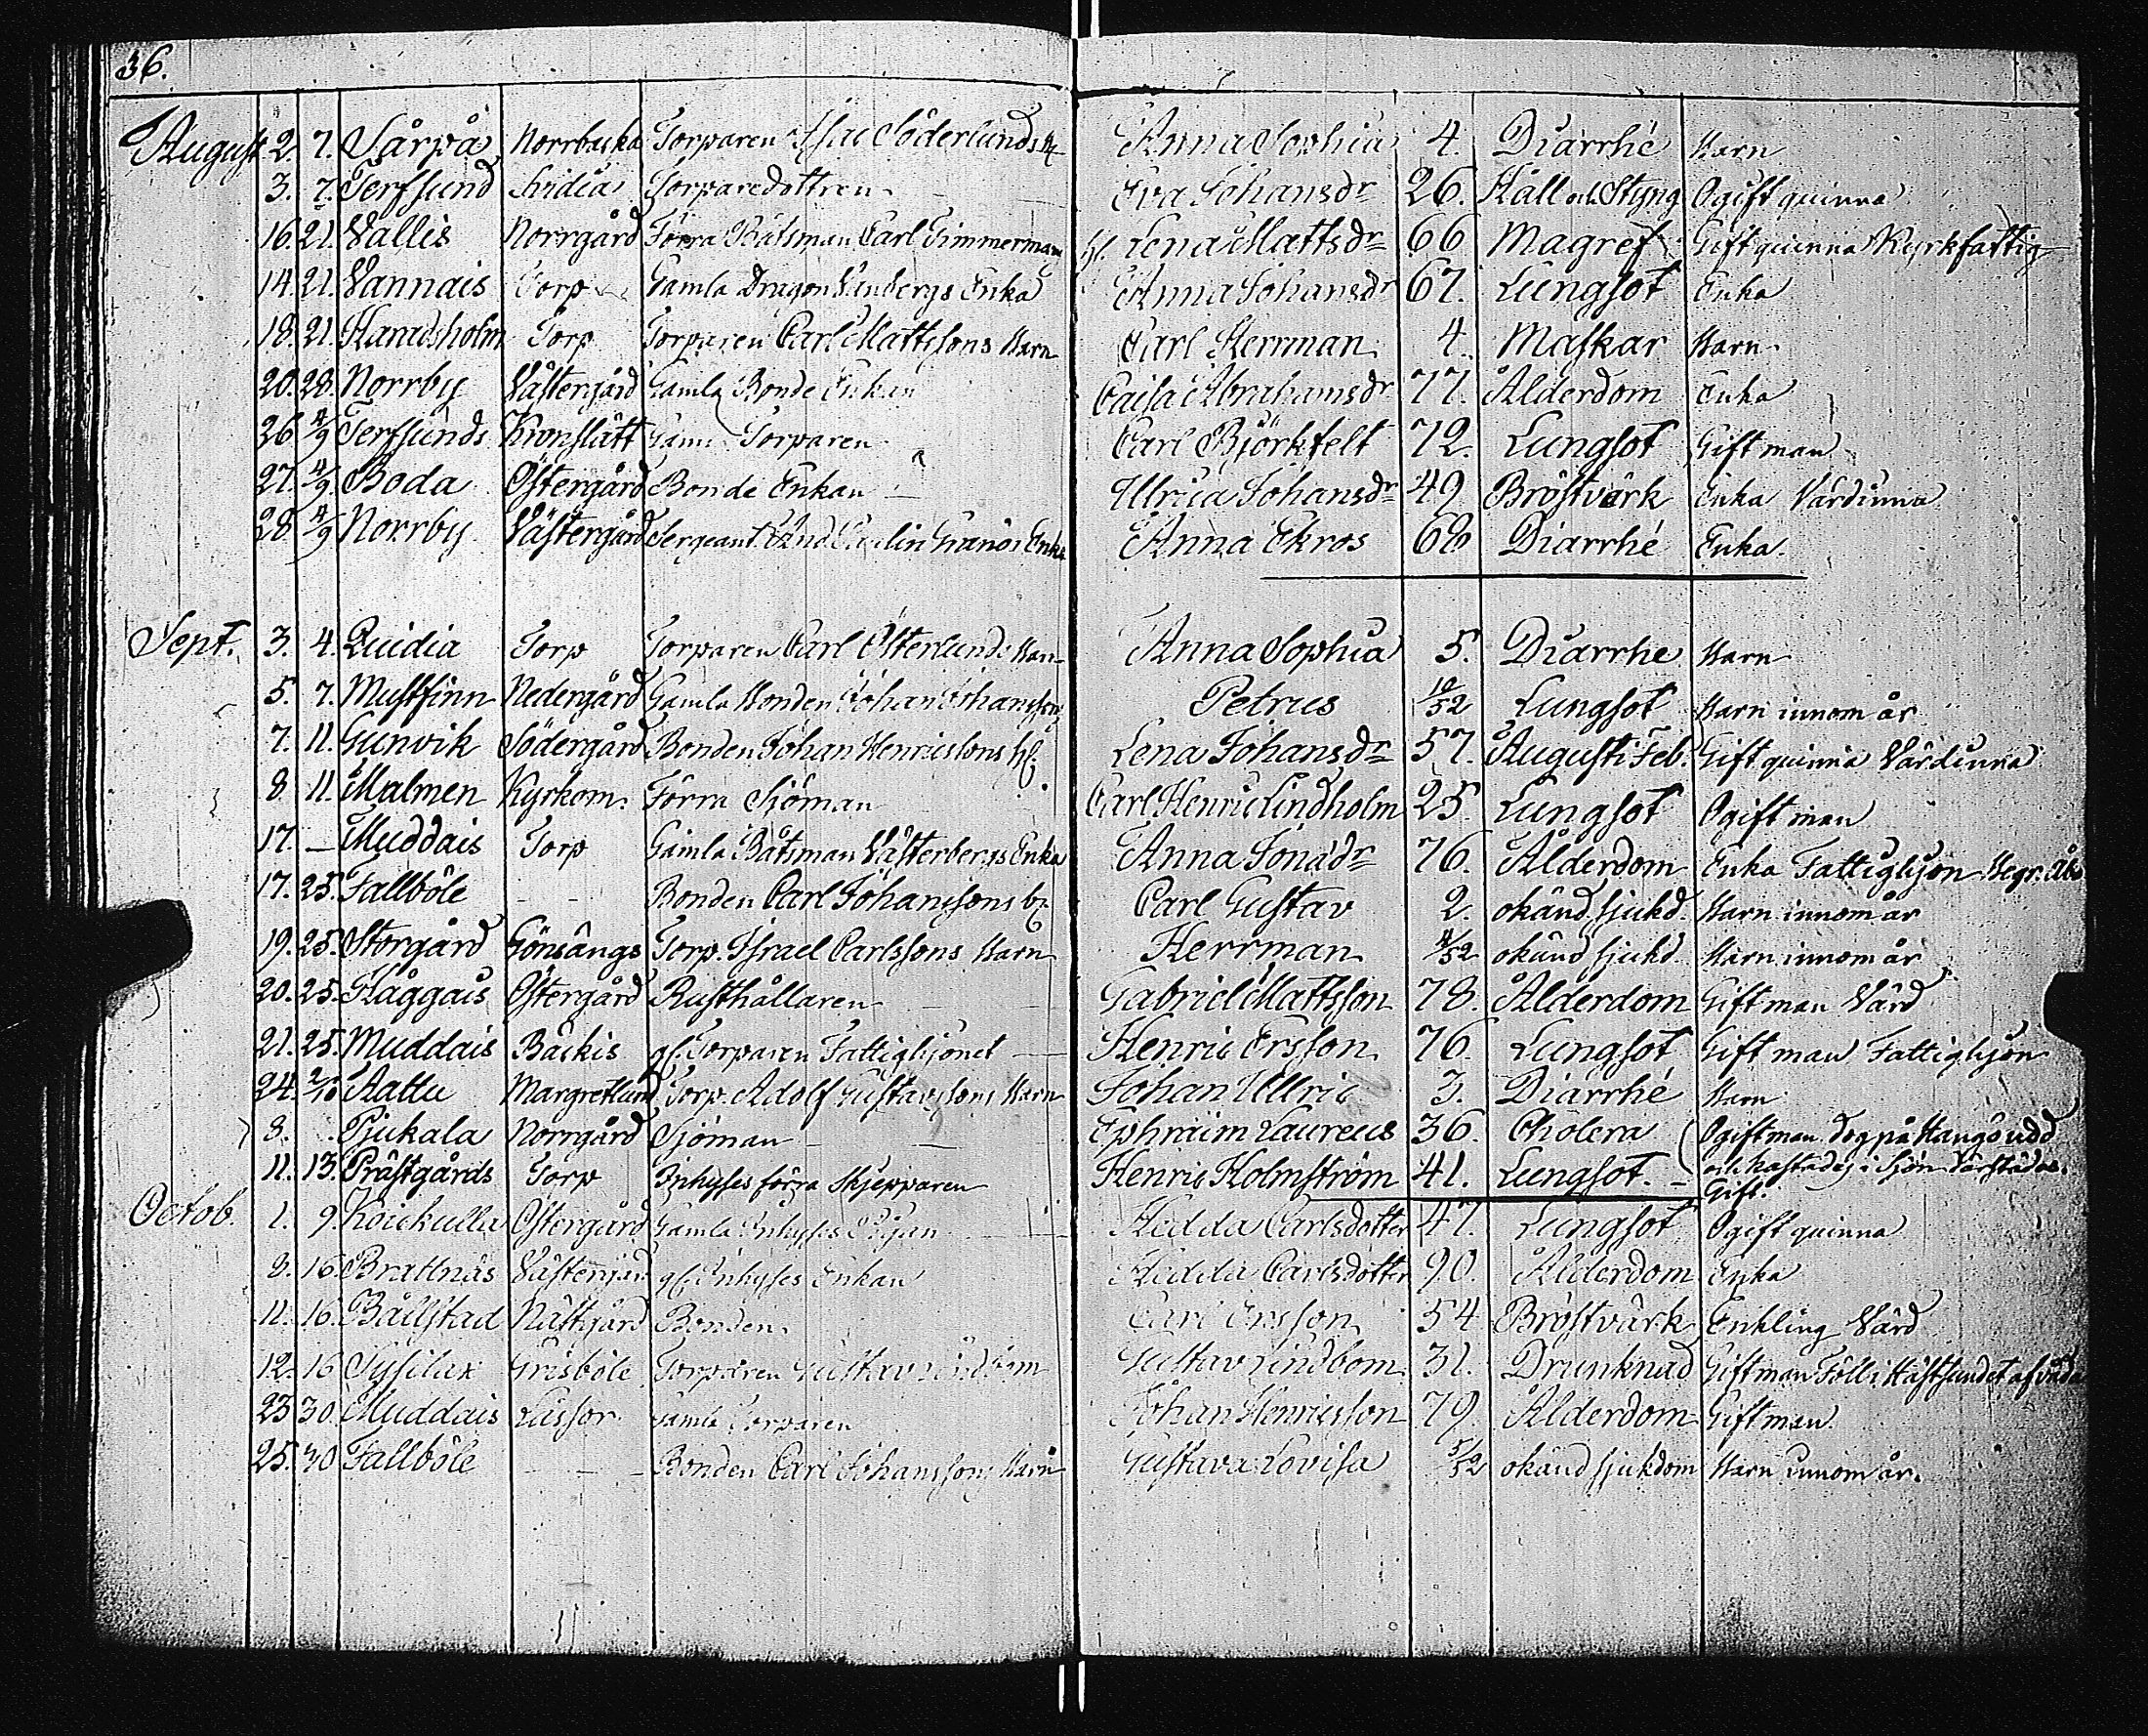 36.
August 2. 7. Särpå Norrbacka Torparen Isac Söderlunds Anna Sophia 4. Diarrhé Barn
3. 7. Terfsund Torparedottren Eva Johansdr 26. Håll och Styng Ogift quinna
16. 21. Vallis Norrgård Förra Båtsman Carl Timmerman h. Lena Mattsdr 66 Magref Gift quinna Kyrkfattig
14. 21. Vannais Torp Gamla Dragon Enka Anna Johansdr 67. Lungsot Enka
18. 21. Haradsholm Torp Torparen Carl Mattssons Barn Carl Herrman 4. Maskar Barn
20. 28. Norrby Västergård Gamla Bonde Enkan Caisa Abrahamsdr 77. Ålderdom Enka
26 4/9 Terfsunds Kronslätt Torparen Carl Björkfelt 72. Lungsot Gift man
27. 4/9 Boda Östergård Bonde Enkan Ulrica Johansdr 49 Bröstvärk Enka Värdinna
28 4/9 Norrby Västergård Sergeant Enka Anna Ekros 68 Diarrhé Enka.
Sept. 3. 4. Quidia Torp Torparen Carl Österlunds Barn Anna Sophia 5. Diarrhe Barn
5. 7. Mustfinn Nedergård Gamla Bonden Johan Johanssons Petrus 10/52 Lungsot Barn innom år
7. 11. Gunvik Södergård Bonden Johan Henricssons h. Lena Johansdr 57. Augusti Feb. Gift quinna Värdinna
8. 11. Malmen Kyrkom. Förra Sjöman Carl Henric Lindholm 25. Lungsot Ogift man
17. — Muddais Torp Gamla Båtsman Västerbergs Enka Anna Jonadr 76. Ålderdom Enka Fattighjon Begr. Åbo
17. 25. Fallböle - - Bonden Carl Johanssons b. Carl Gustav 2. okänd sjukd. Barn innom år
19. 25. Storgård Gönsängs Torp. Israel Carlssons Barn Herrman 4/52 okänd sjukd. Barn innom år
20. 25. Haggais Östergård Rusthållaren Gabriel Mattsson 78. Ålderdom Gift man Värd
21. 25. Muddais Backis gl. Torparen Fattighjonet Henric Ersson 76. Lungsot Gift man Fattighjon
24. 2/10 Aattu Margretlund Torp. Adolf Gustavssons Barn Johan Ullric 3. Diarrhé Barn
8. . Pjukala Norrgård Sjöman Ephraim Laureus 36. Cholera Ogift man dog på Hangö udd
och kastades i Sjön därstädes.
11. 13. Prästgårds Torp Inhyses förra Skjepparen Henric Holmström 41. Lungsot. - Gift.
Octob. 1. 9. Koickulla Östergård Gamla Inhyses Pigan Hedda Carlsdotter 47. Lungsot Ogift quinna
8. 16. Brattnäs Västergård gl. Inhyses Enkan Hedda Carlsdotter 90. Ålderdom Enka
11. 16. Bällstad Nästgård Bonden Carl Ersson 54 Bröstvärk Enkling Värd
12. 16 Sysilax Grisböle Torparen Gustav Lindbom Gustav Lindbom 31. Drunknad Gift man Föll i Hästsundet af våda
23 30. Muddais Lassor Gamla Torparen Johan Henricsson 79. Ålderdom Gift man.
25. 30 Fallböle - - - Bonden Carl Johanssons Barn Gustava Lovisa 5/52 okänd sjukdom Barn innom år.